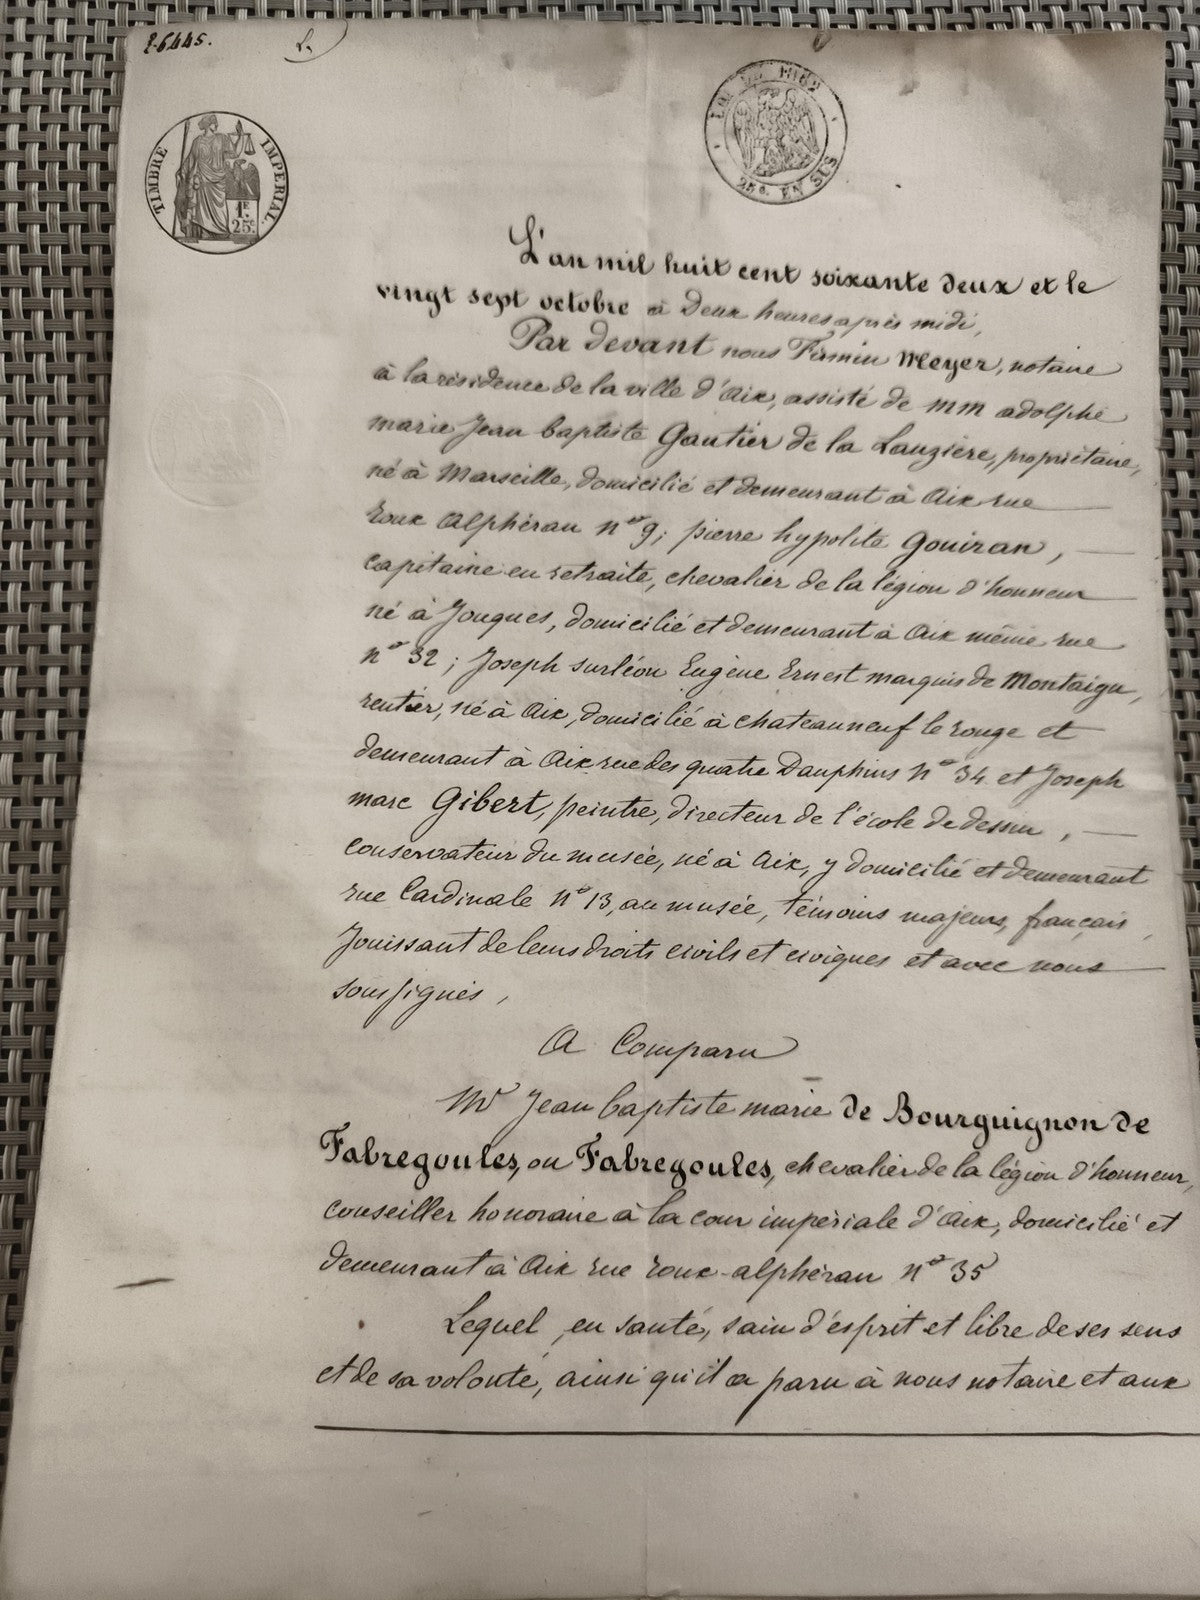 TIMBRE IMPERIAL.
1F.
25c.
LOI DE 1862
25c. EN SUS
L'an mil huit cent soixante deux et le
vingt sept octobre à Deux heures après midi,
Par devant nous Firmin Meyer, notaire
à la résidence de la ville d'aix, assisté de mm adolphe
marie Jean baptiste Gautier de la Lauzière, propriétaire,
né à Marseille, domicilié et demeurant à Aix rue
roux Alphéran no 9; pierre hypolite Gouiran,
capitaine en retraite, chevalier de la légion d'honneur
né à Jouques, domicilié et demeurant à Aix même rue
no 32; Joseph surléon Eugène Ernest marquis de Montaigu,
rentier, né à Aix, domicilié à chateauneuf le rouge et
demeurant à Aix rue des quatre Dauphins no 34 et Joseph
marc Gibert, peintre, directeur de l'école de dessin,
conservateur du musée, né à Aix, y domicilié et demeurant
rue Cardinale no 13, au musée, témoins majeurs, français,
Jouissant de leurs droits civils et civiques et avec nous
soussignés,
A Comparu
Mr Jean baptiste marie de Bourguignon de
Fabregoules, ou Fabregoules, chevalier de la légion d'honneur,
conseiller honoraire à la cour impériale d'aix, domicilié et
demeurant à Aix rue roux-alphéran no 35
Lequel, en santé, sain d'esprit et libre de ses sens
et de sa volonté, ainsi qu'il a paru à nous notaire et aux